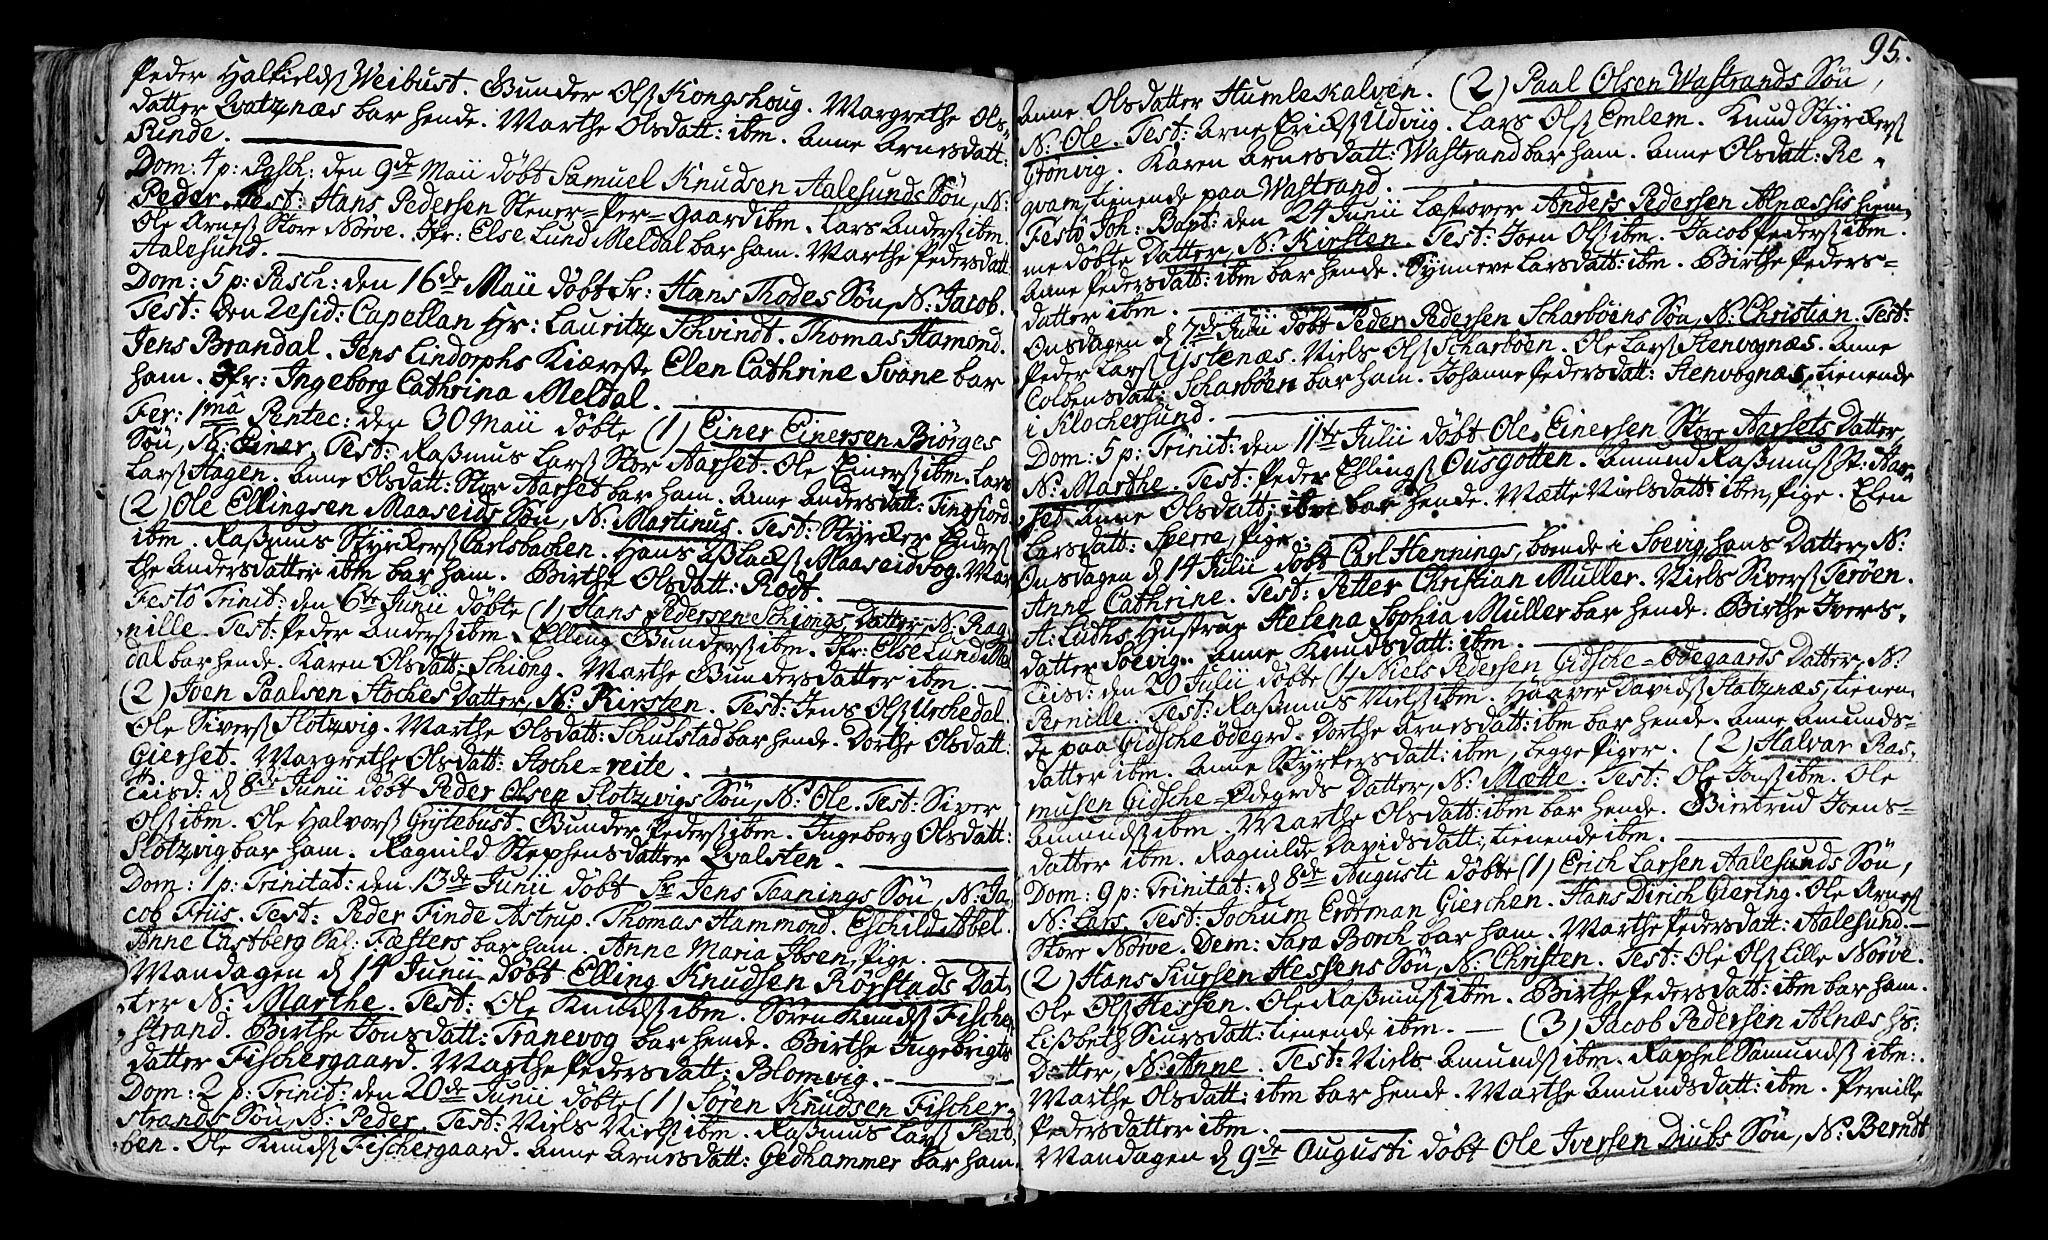 Peder Halkieldß Weibust. Gunder Olß Kongshoug. Margrethe Ols-
datter Qvatznæs bar hende. Marthe Olsdatt: ibm. Anne Arnesdatt:
Rinde.
Dom: 4 p: Pasch: den 9de Maii døbt Samuel Knudsen Aalesunds Søn, N:
Peder. Test: Hans Pedersen Stener=Per=gaard ibm. Lars Anderß ibm.
Ole Arneß Store Nørve. Jfr: Else Lund Meldal bar ham. Marthe Pedersdatt:
Aalesund.
Dom: 5 p: Pasch: den 16de Maii døbt Sr: Hans Thodes Søn, N: Jacob.
Test: Den Resid: Capellan Hr: Lauritz Schvindt. Thomas Hamond.
Jens Brandal. Jens Lindorphs Kiæreste Elen Cathrine Svane bar
ham. Jfr: Ingeborg Cathrina Meldal.
Fer: 1mâ Pentec: den 30 Maii døbte (1) Einer Einersen Biørges
Søn, N: Einer. Test: Raßmus Larß Stor Aarset. Ole Einerß ibm. Lars
Larß Hagen. Anne Olsdatt: Stor Aarset bar ham. Anne Andersdatt: Tingfiord.
(2) Ole Ellingsen Maaseids Søn, N: Martinus. Test: Styrcker Enderß
ibm. Raßmus Styrckerß Carlsbachen. Hans Aßlackß Maaseidvog. Mar-
the Andersdatter ibm bar ham. Birthe Olsdatt: Rødt.
Festo Trinit: den 6te Junii døbte (1) Hans Pedersen Schiongs Datter, N: Rag-
nille. Test: Peder Anderß ibm. Elling Gunderß ibm. Jfr: Else Lund Mel-
dal bar hende. Karen Olsdatt: Schiong. Marthe Gundersdatter ibm.
(2) Iven Paalsen Stoches Datter, N: Kirsten. Test: Jens Olß Urchedal.
Ole Siverß Slotzvig. Marthe Olsdatt: Schulstad bar hende. Dorthe Olsdatt:
Gierset. Margrethe Olsdatt: Stoche=reite.
Tiisd: d 8de Junii døbt Peder Olsen Slotzvigs Søn, N: Ole. Test: Siver
Olß ibm. Ole Halvorß Gyttebust. Gunder Pederß ibm. Ingeborg Olsdatt:
Slotzvig bar ham. Ragnild Stephensdatter Qvalsten.
Dom: 1 p: Trinitat: den 13de Junii døbt Sr Jens Taanings Søn, N: Ja-
cob Friis. Test: Peder Finde Astrup. Thomas Hammond. Eschild Abel.
Anne Cistberg Sal: Fæsters bar ham. Anne Maria Ibsen, Pige.
Mandagen d 14 Junii døbt Elling Knudsen Rørstads Dat-
ter N: Marthe. Test: Ole Knudß ibm. Søren Knudß Fischer-
strand. Birthe Jonsdatt: Tranevog bar hende. Birthe Ingebrigts
datter Fischergaard. Marthe Pedersdatt: Blomvig.
Dom: 2 p: Trinit: den 20de Junii døbte (1) Søren Knudsen Fischer-
strands Søn, N: Peder. Test: Niels Nielß ibm. Raßmus Larß
ben. Ole Knudß Fischergaard. Anne Arnesdatt: Gedhammer bar ham.
95.
Anne Olsdatter Humlekalven. (2) Paal Olsen Wastrands Søn,
N: Ole. Test: Arne Erickß Udviig. Lars Olß Emlem. Knud Styrckerß
Grønvig. Karen Arnesdatt: Wastrand bar ham. Anne Olsdatt: Re-
qvam, tienende paa Wastrand.
Festo Joh: Bapt: den 24 Junii læst over Anders Pedersen Alnæssis hiem-
medøbte Datter, N: Kirsten. Test: Joen Olß ibm. Jacob Pederß ibm.
Anne Pedersdatt: ibm bar hende. Synneve Larsdatt: ibm. Birthe Peders-
datter ibm.
Onsdagen d 7de Julii døbt Peder Pedersen Scharbøens Søn, N: Christian. Test:
Peder Larß Ystenæs. Niels Olß Scharbøen. Ole Larß Stenvognæs. Anne
Colbensdatt: Scharbøen bar ham. Johanne Pedersdatt: Stenvognæs, tienende
i Klochersund.
Dom: 5 p: Trinit: den 11te Julii døbt Ole Einersen Store Aarsets Datter,
N: Marthe. Test: Peder Ellingß Ousgotten. Amund Raßmusß St: Aar-
set. Anne Olsdatt: ibm bar hende. Mætte Nielsdatt: ibm, Pige. Elen
Larsdatt: Sperre, Pige.
Onsdagen d 14 Julii døbt Carl Hennings, boende i Soevig, hans Datter, N:
Anne Cathrine. Test: Petter Christian Müller. Niels Siverß Terøen.
A: Lüdhs Hustrue Helena Sophia Müller bar hende. Birthe Ivers-
datter Soevig. Anne Knudsdatt: ibm.
Tiisd: den 20 Julii døbte (1) Niels Pedersen Gidsche=Ødegaards Datter, N:
Pernille. Test: Raßmus Nielß ibm. Haaver Davidß Slatznæs, tienen-
de paa Gidsche Ødegrd. Dorthe Arnesdatt: ibm bar hende. Anne Amunds-
datter ibm. Anne Styrkersdatt: ibm, begge Piger. (2) Halvar Ras-
musen Gidsche=Ødegrds Datter, N: Mætte. Test: Ole Jonß ibm. Ole
Amundß ibm. Marthe Olsdatt: ibm bar hende. Giertrud Joens-
datter ibm. Ragnilde Davidsdatt:, tienende ibm.
Dom: 9 p: Trinitat: d 8de Augusti døbte (1) Erich Larsen Aalesunds Søn,
N: Lars. Test: Jochum Erdtman Gierchen. Hans Dirich Giering. Ole Arneß
Store Nørve. Dem: Sara Borch bar ham. Marthe Pedersdatt: Aalesund.
(2) Hans Siursen Hessens Søn, N: Christen. Test: Ole Olß Lille Nørve.
Ole Olß Hessen. Ole Raßmusß ibm. Birthe Pedersdatt: ibm bar ham.
Lisbeth Siursdatt: tienende ibm. (3) Jacob Pedersen Alnæs hs:
Datter, N: Anne. Test: Niels Amundß ibm. Raphel Samundß ibm:
Marthe Olsdatt: ibm bar hende. Marthe Amundsdatt: ibm. Pernille
Pedersdatter ibm.
Mandagen d 9de Augusti døbt Ole Iversen Diubs Søn, N: Berndt